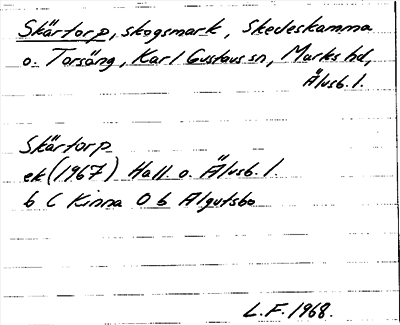 Skärtorp, skogsmark, Skedeskamma
o. Torsäng, Karl Gustavs sn, Marks hd,
Älvsb. l.
Skärtorp
ek (1967) Hall. o. Älvsb. l.
b C Kinna O b Algutsbo
L.F. 1968.